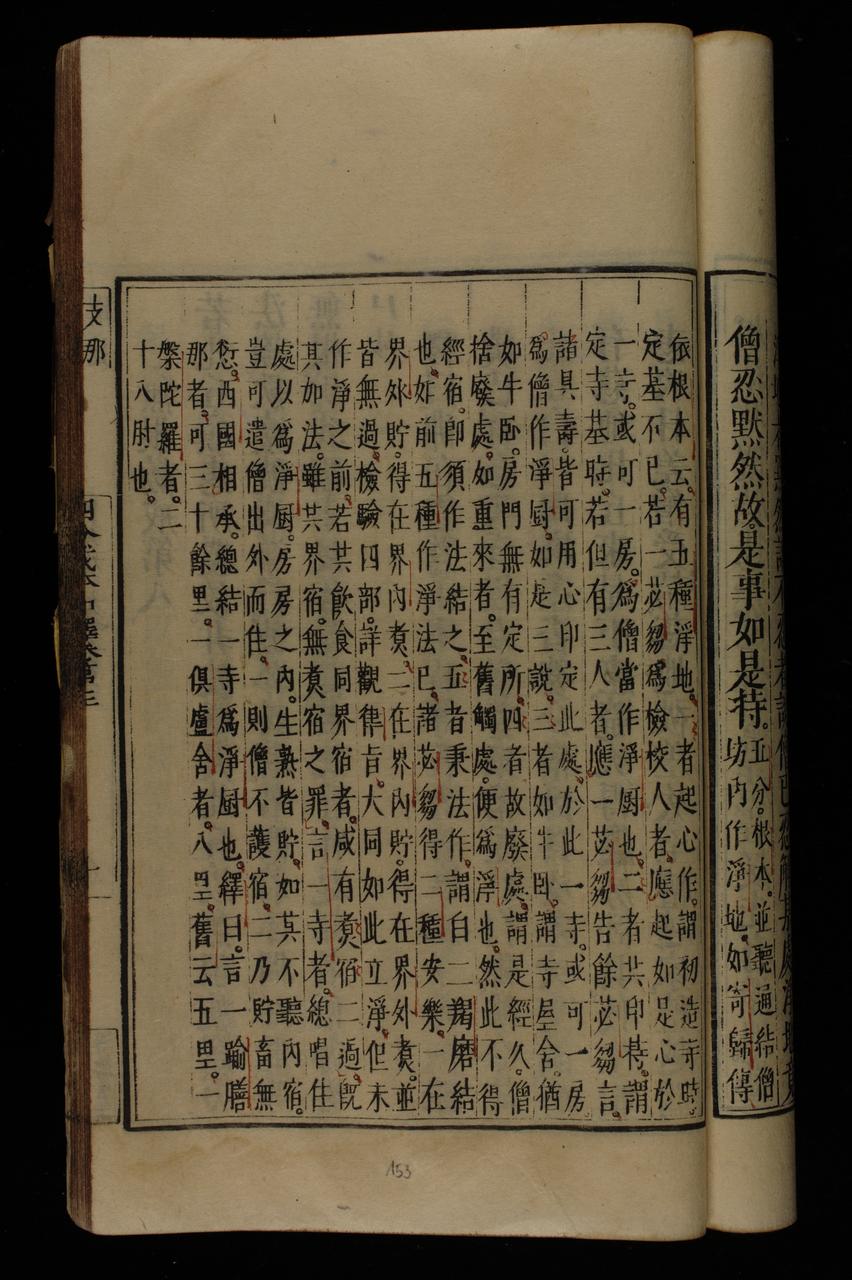 僧忍默然故是事如是持。五分。根本。並聽通結僧
坊內作淨地。如寄歸傳
依根本云。有五種淨地。一者起心作。謂初造寺時。
定基不已。若一苾芻爲檢校人者。應起如是心。於
一寺。或可一房。爲僧當作淨厨也。二者共印持。謂
定寺基時。若但有三人者。應一苾芻告餘苾芻言。
諸具壽。皆可用心印定此處。於此一寺。或可一房
爲僧作淨厨。如是三說。三者如牛臥。謂寺屋舍。猶
如牛臥。房門無有定所。四者故廢處。謂是經久。僧
捨廢處。如重來者。至舊觸處。便爲淨也。然此不得
經宿。卽須作法結之。五者秉法作。謂白二羯磨結
也。如前五種作淨法已。諸苾芻得二種安樂。一在
界外貯。得在界內煮。二在界內貯。得在界外煮。並
皆無過。檢驗四部。詳觀律旨。大同如此立淨。但未
作淨之前。若共飲食同界宿者。咸有煮宿二過。旣
其加法。雖共界宿。無煮宿之罪。言一寺者。總唱住
處以爲淨厨。房房之內。生熟皆貯。如其不聽內宿。
豈可遣僧出外而住。一則僧不護宿。二乃貯畜無
愆。西國相承。總結一寺爲淨厨也。繹曰。言一踰膳
那者。可三十餘里。一俱盧舍者。八里。舊云五里。一
槃陀羅者。二
十八肘也。
支那
十
153